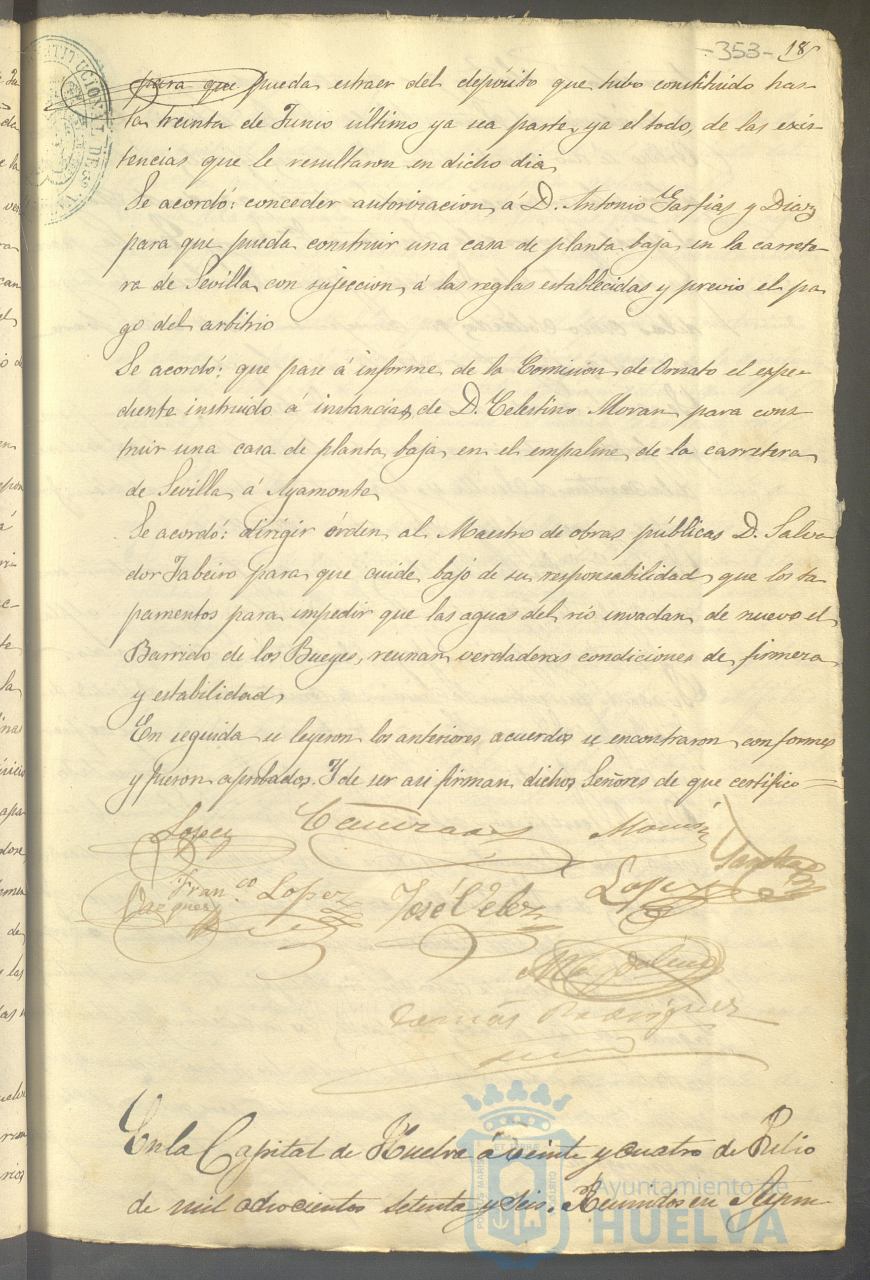 -353- 18
para que pueda estraer del depósito que tubo constituido has-
ta treinta de Junio último ya sea parte, ya el todo, de las exis-
tencias que le resultaron en dicho dia
Se acordó: conceder autorizacion á D. Antonio Garfias y Diaz
para que pueda construir una casa de planta baja en la carrete-
ra de Sevilla con sujeccion á las reglas establecidas y previo el pa-
go del arbitrio
Se acordó: que pase á informe de la Comision de Ornato el espe-
diente instruido á instancias de D. Celestino Moran para cons-
truir una casa de planta baja en el empalme de la carretera
de Sevilla á Ayamonte
Se acordó: dirigir órden al Maestro de obras públicas D. Salva-
dor Tabeiro para que cuide bajo de su responsabilidad que los ta-
pamentos para impedir que las aguas del rio invadan de nuevo el
Barrido de los Bueyes, reunan verdaderas condiciones de firmeza
y estabilidad
En seguida se leyeron los anteriores acuerdos se encontraron conformes
y fueron aprobados. Y de ser asi firman dichos Señores de que certifico
Lopez
Vazquez Fran.co Lopez José Velez Lopez
Tomás Rodriguez
En la Capital de Huelva á veinte y cuatro de Julio
de mil ochocientos setenta y seis. Reunidos en Ayun-
Ayuntamiento de
HUELVA